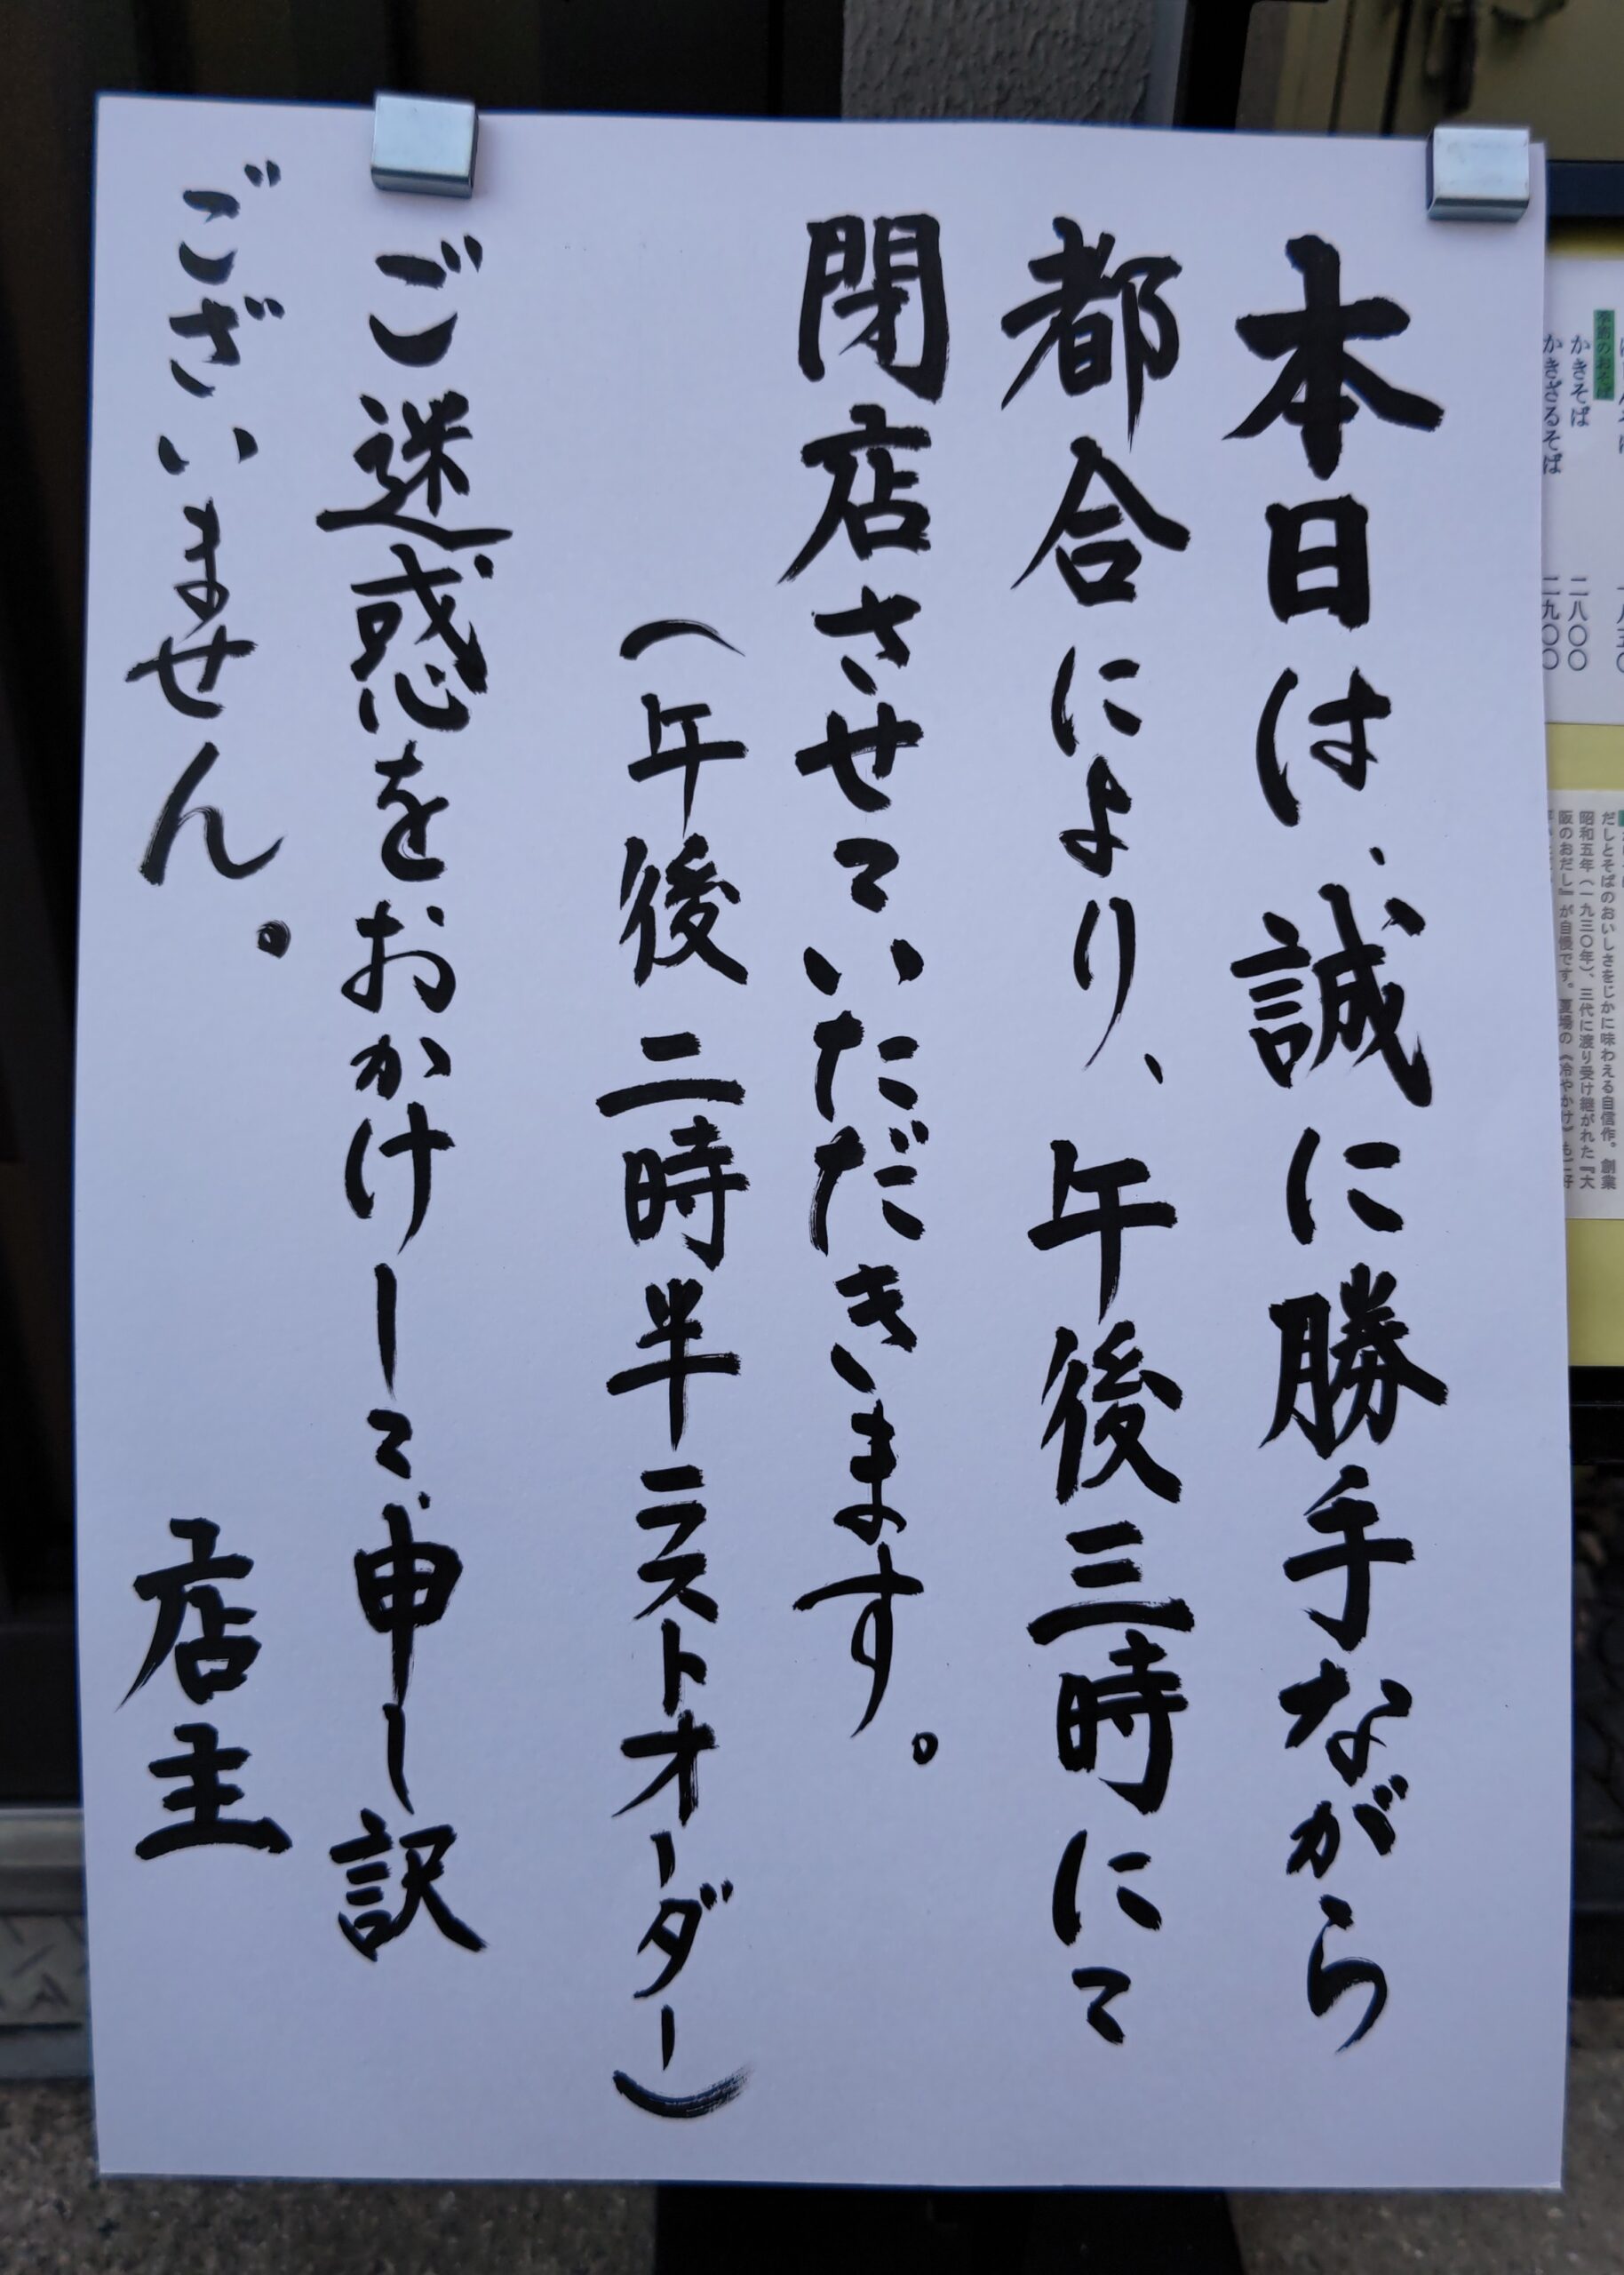 本日は、誠に勝手ながら
都合により、午後三時にて
閉店させていただきます。
(午後二時半ラストオーダー)
ご迷惑をおかけして申し訳
ございません。
店主
季節のおそば
かきそば 二八〇〇
かきざるそば 二九〇〇
だしとそばのおいしさをじかに味わえる自信作。創業
昭和五年(一九三〇年)、三代に渡り受け継がれた『大
阪のおだし』が自慢です。夏場の《冷やかけ》もご好